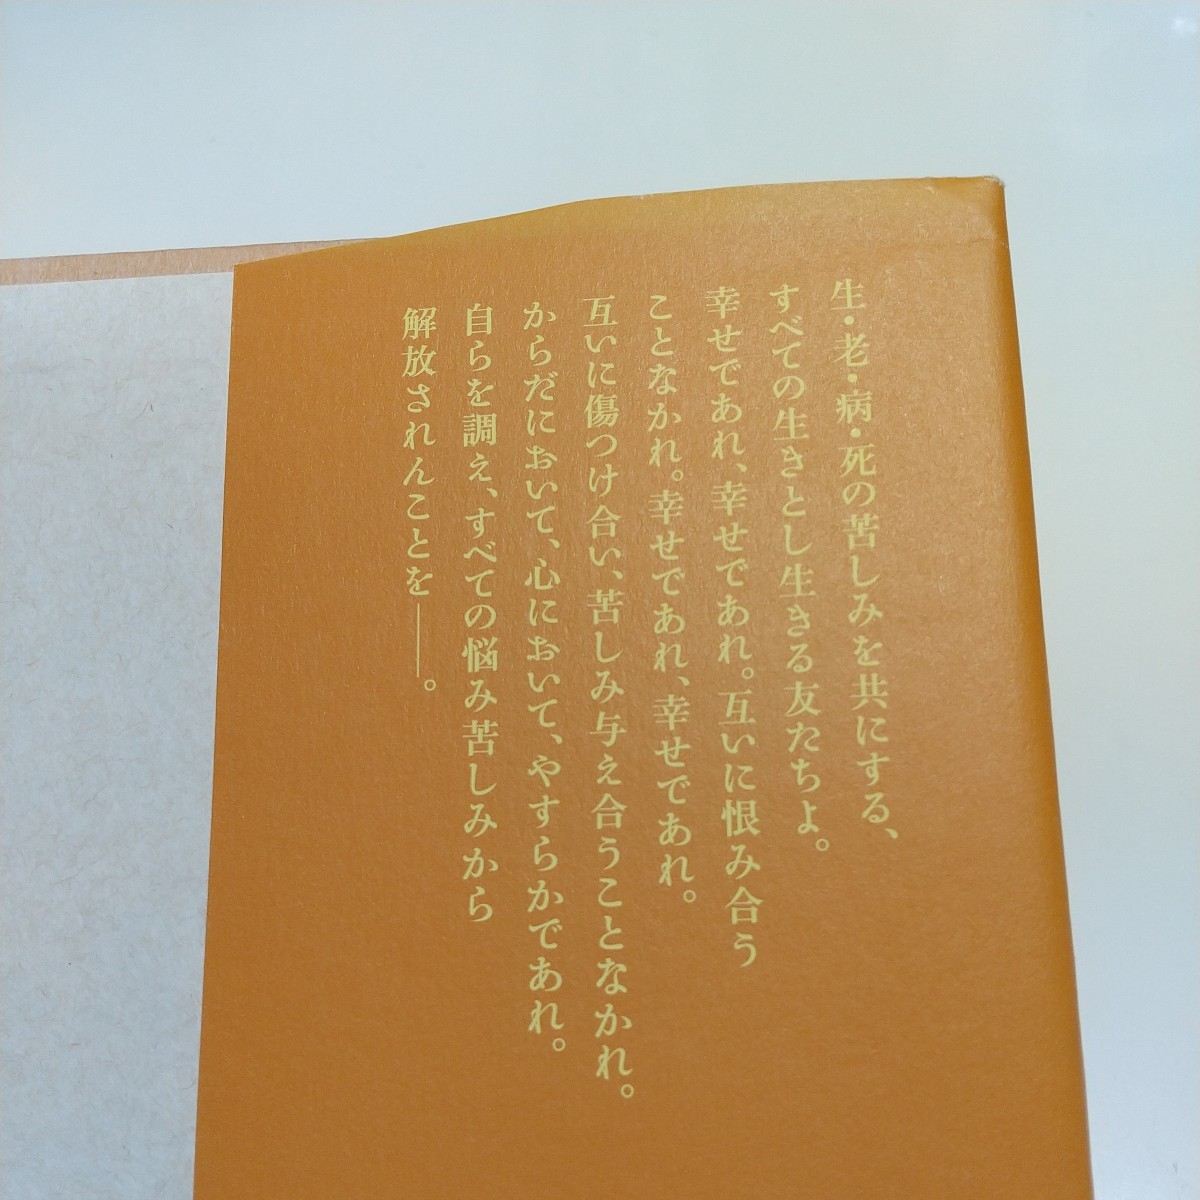 生・老・病・死の苦しみを共にする、
すべての生きとし生きる友たちよ。
幸せであれ、幸せであれ。互いに恨み合う
ことなかれ。幸せであれ、幸せであれ。
互いに傷つけ合い、苦しみ与え合うことなかれ。
からだにおいて、心において、やすらかであれ。
自らを調え、すべての悩み苦しみから
解放されんことを――。